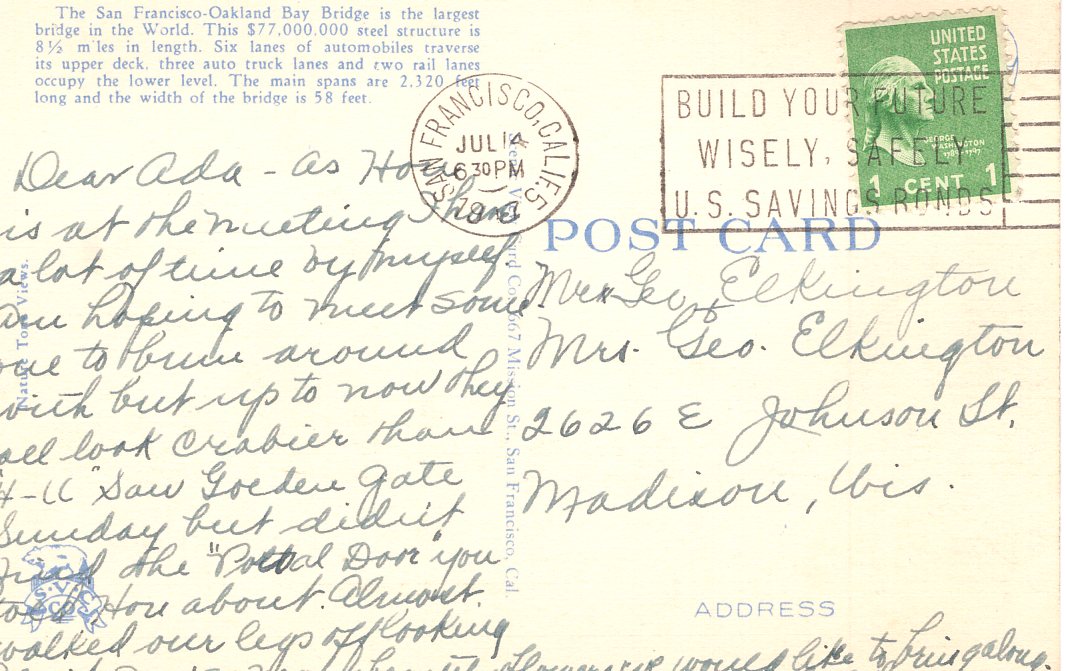 The San Francisco-Oakland Bay Bridge is the largest
bridge in the World. This $77,000,000 steel structure is
8½ miles in length. Six lanes of automobiles traverse
its upper deck, three auto truck lanes and two rail lanes
occupy the lower level. The main spans are 2,320 feet
long and the width of the bridge is 58 feet.
SAN FRANCISCO, CALIF. 5
JUL 14
6 30 PM
BUILD YOUR FUTURE
WISELY, SAFELY
U.S. SAVINGS BONDS
UNITED
STATES
POSTAGE
GEORGE
WASHINGTON
1789-1797
1 CENT 1
POST CARD
Dear Ada - as How
is at the meeting I have
a lot of time by myself
am hoping to meet some
one to bum around
with but up to now they
all look crabier than
"H-ll" Saw Golden Gate
Sunday but didn't
find the "Postal Door" you
told How about. Almost
walked our legs off looking
flowers we would like to bring along.
Mr & Geo Elkington
Mrs. Geo. Elkington
2626 E Johnson St.
Madison, Wis.
Nature Tone Views.
Card Co. 667 Mission St., San Francisco, Cal.
S.V.C.
Co
ADDRESS